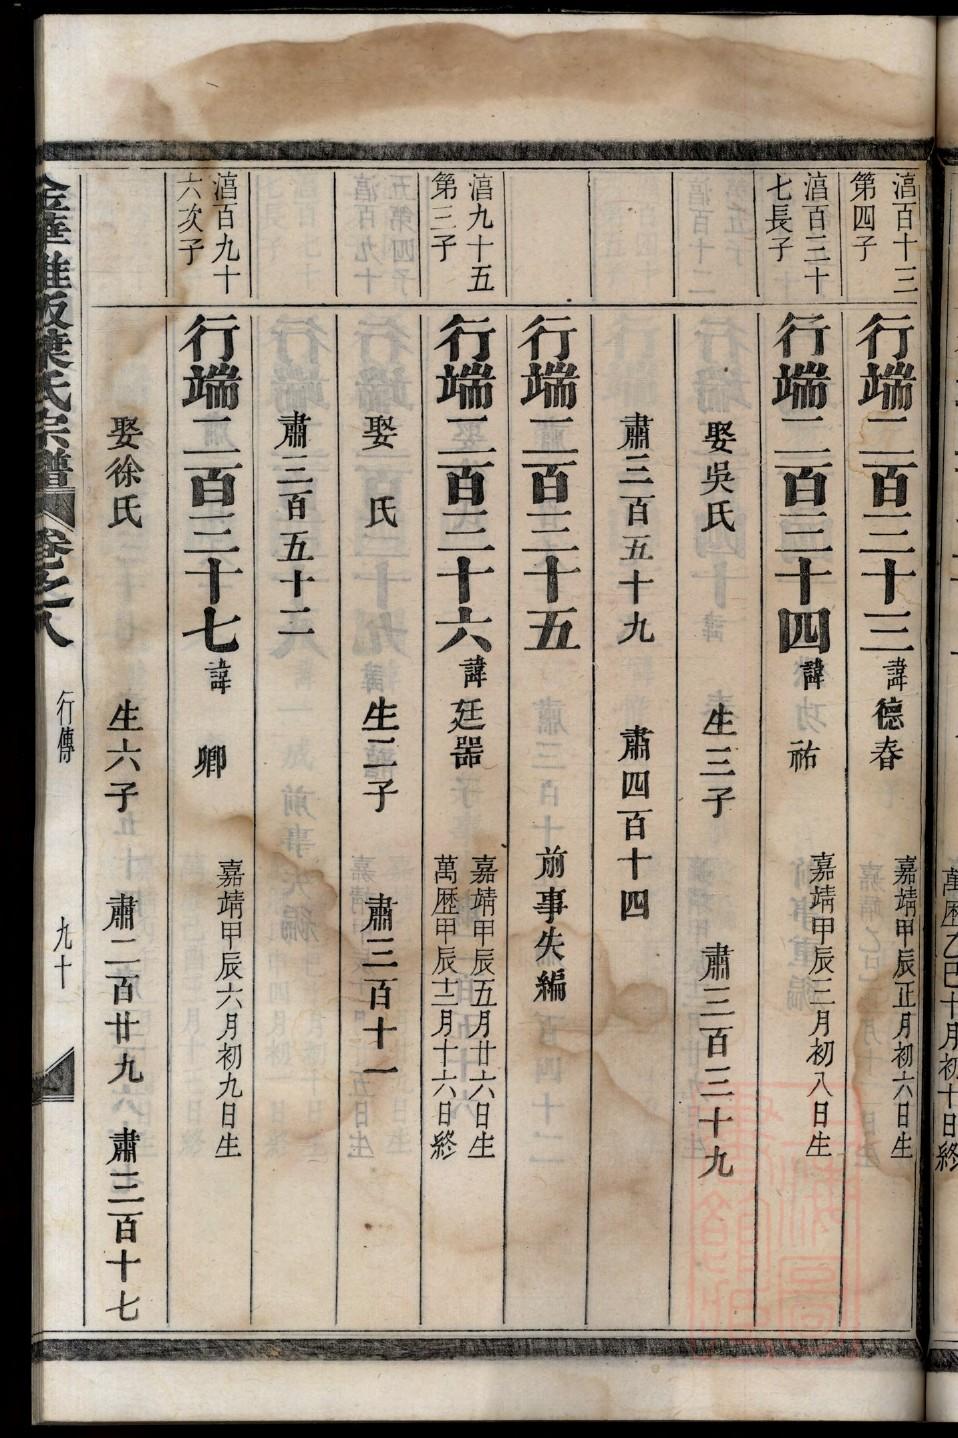 萬歷乙巳十月初十日終
湻百十三
第四子
行端二百三十三
諱德春
嘉靖甲辰正月初六日生
湻百三十
七長子
行端二百三十四
諱 祐
嘉靖甲辰三月初八日生
娶吳氏 生三子 肅三百三十九
肅三百五十九 肅四百十四
行端二百三十五 前事失編
湻九十五
第三子
行端二百三十六
諱廷器
嘉靖甲辰五月廿六日生
萬歷甲辰十二月十六日終
娶 氏 生二子 肅三百十一
肅三百五十二
湻百九十
六次子
行端二百三十七
諱 卿
嘉靖甲辰六月初九日生
娶徐氏 生六子 肅二百廿九 肅三百十七
葉氏宗譜 卷之八 行傳 九十